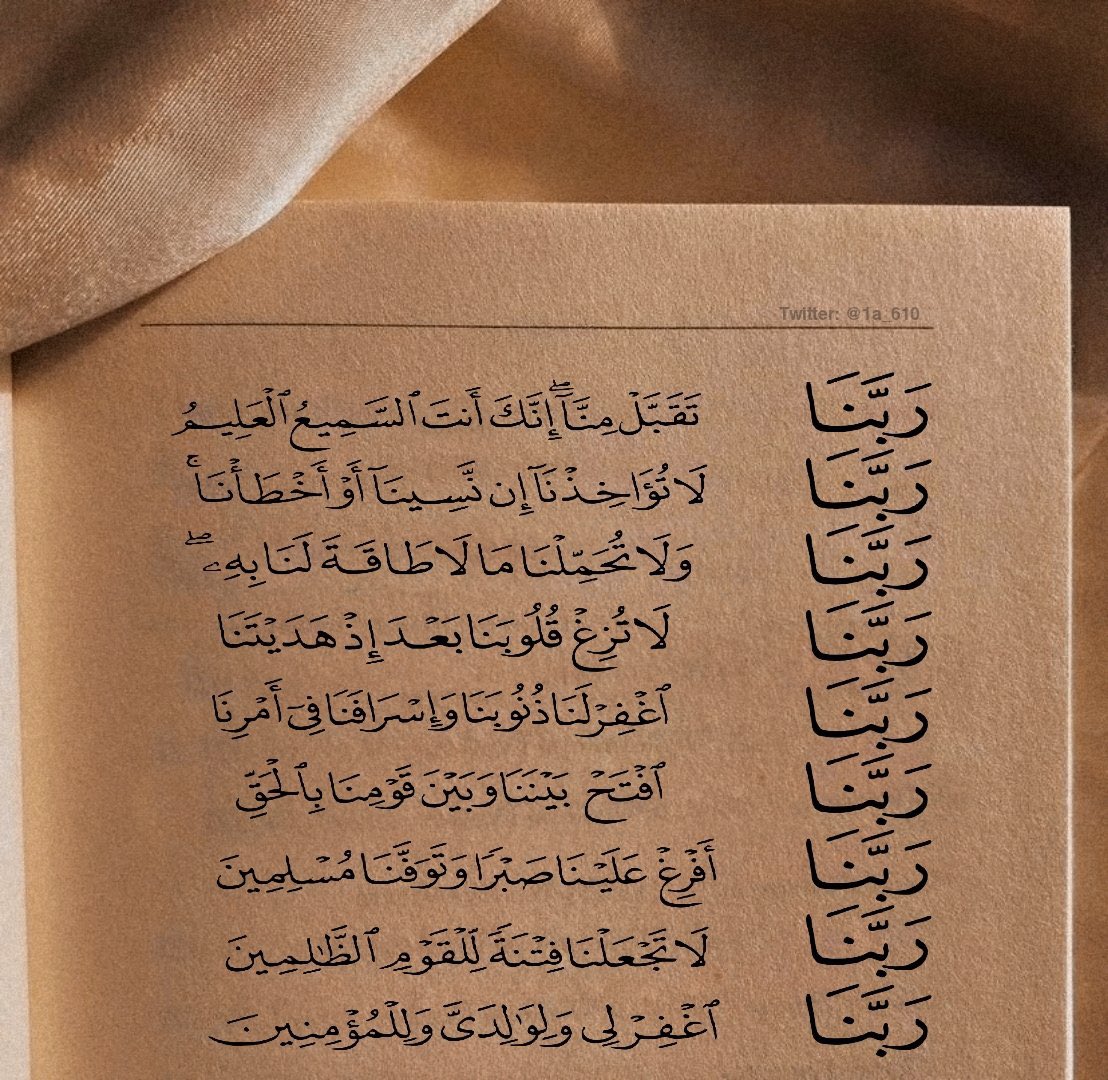 Twitter: @1a_610
رَبَّنَا تَقَبَّلْ مِنَّآ ۖ إِنَّكَ أَنتَ ٱلسَّمِيعُ ٱلْعَلِيمُ
رَبَّنَا لَا تُؤَاخِذْنَآ إِن نَّسِينَآ أَوْ أَخْطَأْنَا ۚ
رَبَّنَا وَلَا تُحَمِّلْنَا مَا لَا طَاقَةَ لَنَا بِهِۦ ۖ
رَبَّنَا لَا تُزِغْ قُلُوبَنَا بَعْدَ إِذْ هَدَيْتَنَا
رَبَّنَا ٱغْفِرْ لَنَا ذُنُوبَنَا وَإِسْرَافَنَا فِىٓ أَمْرِنَا
رَبَّنَا ٱفْتَحْ بَيْنَنَا وَبَيْنَ قَوْمِنَا بِٱلْحَقِّ
رَبَّنَآ أَفْرِغْ عَلَيْنَا صَبْرًا وَتَوَفَّنَا مُسْلِمِينَ
رَبَّنَا لَا تَجْعَلْنَا فِتْنَةً لِّلْقَوْمِ ٱلظَّٰلِمِينَ
رَبَّنَا ٱغْفِرْ لِى وَلِوَٰلِدَىَّ وَلِلْمُؤْمِنِينَ